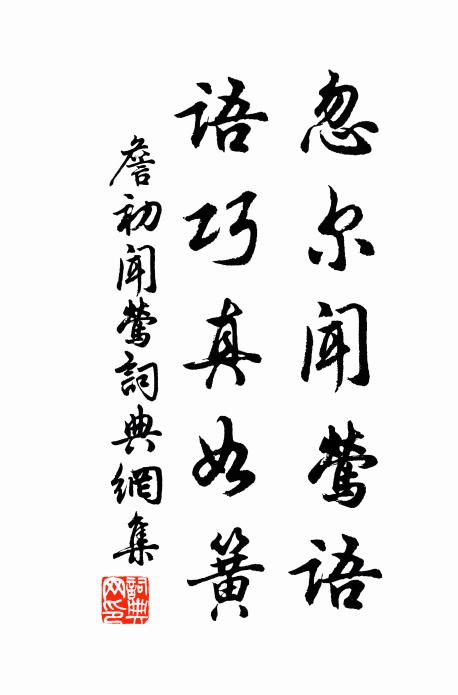 忽尔闻莺语
语巧真如簧
詹初闻莺詞典網集
詞典网印